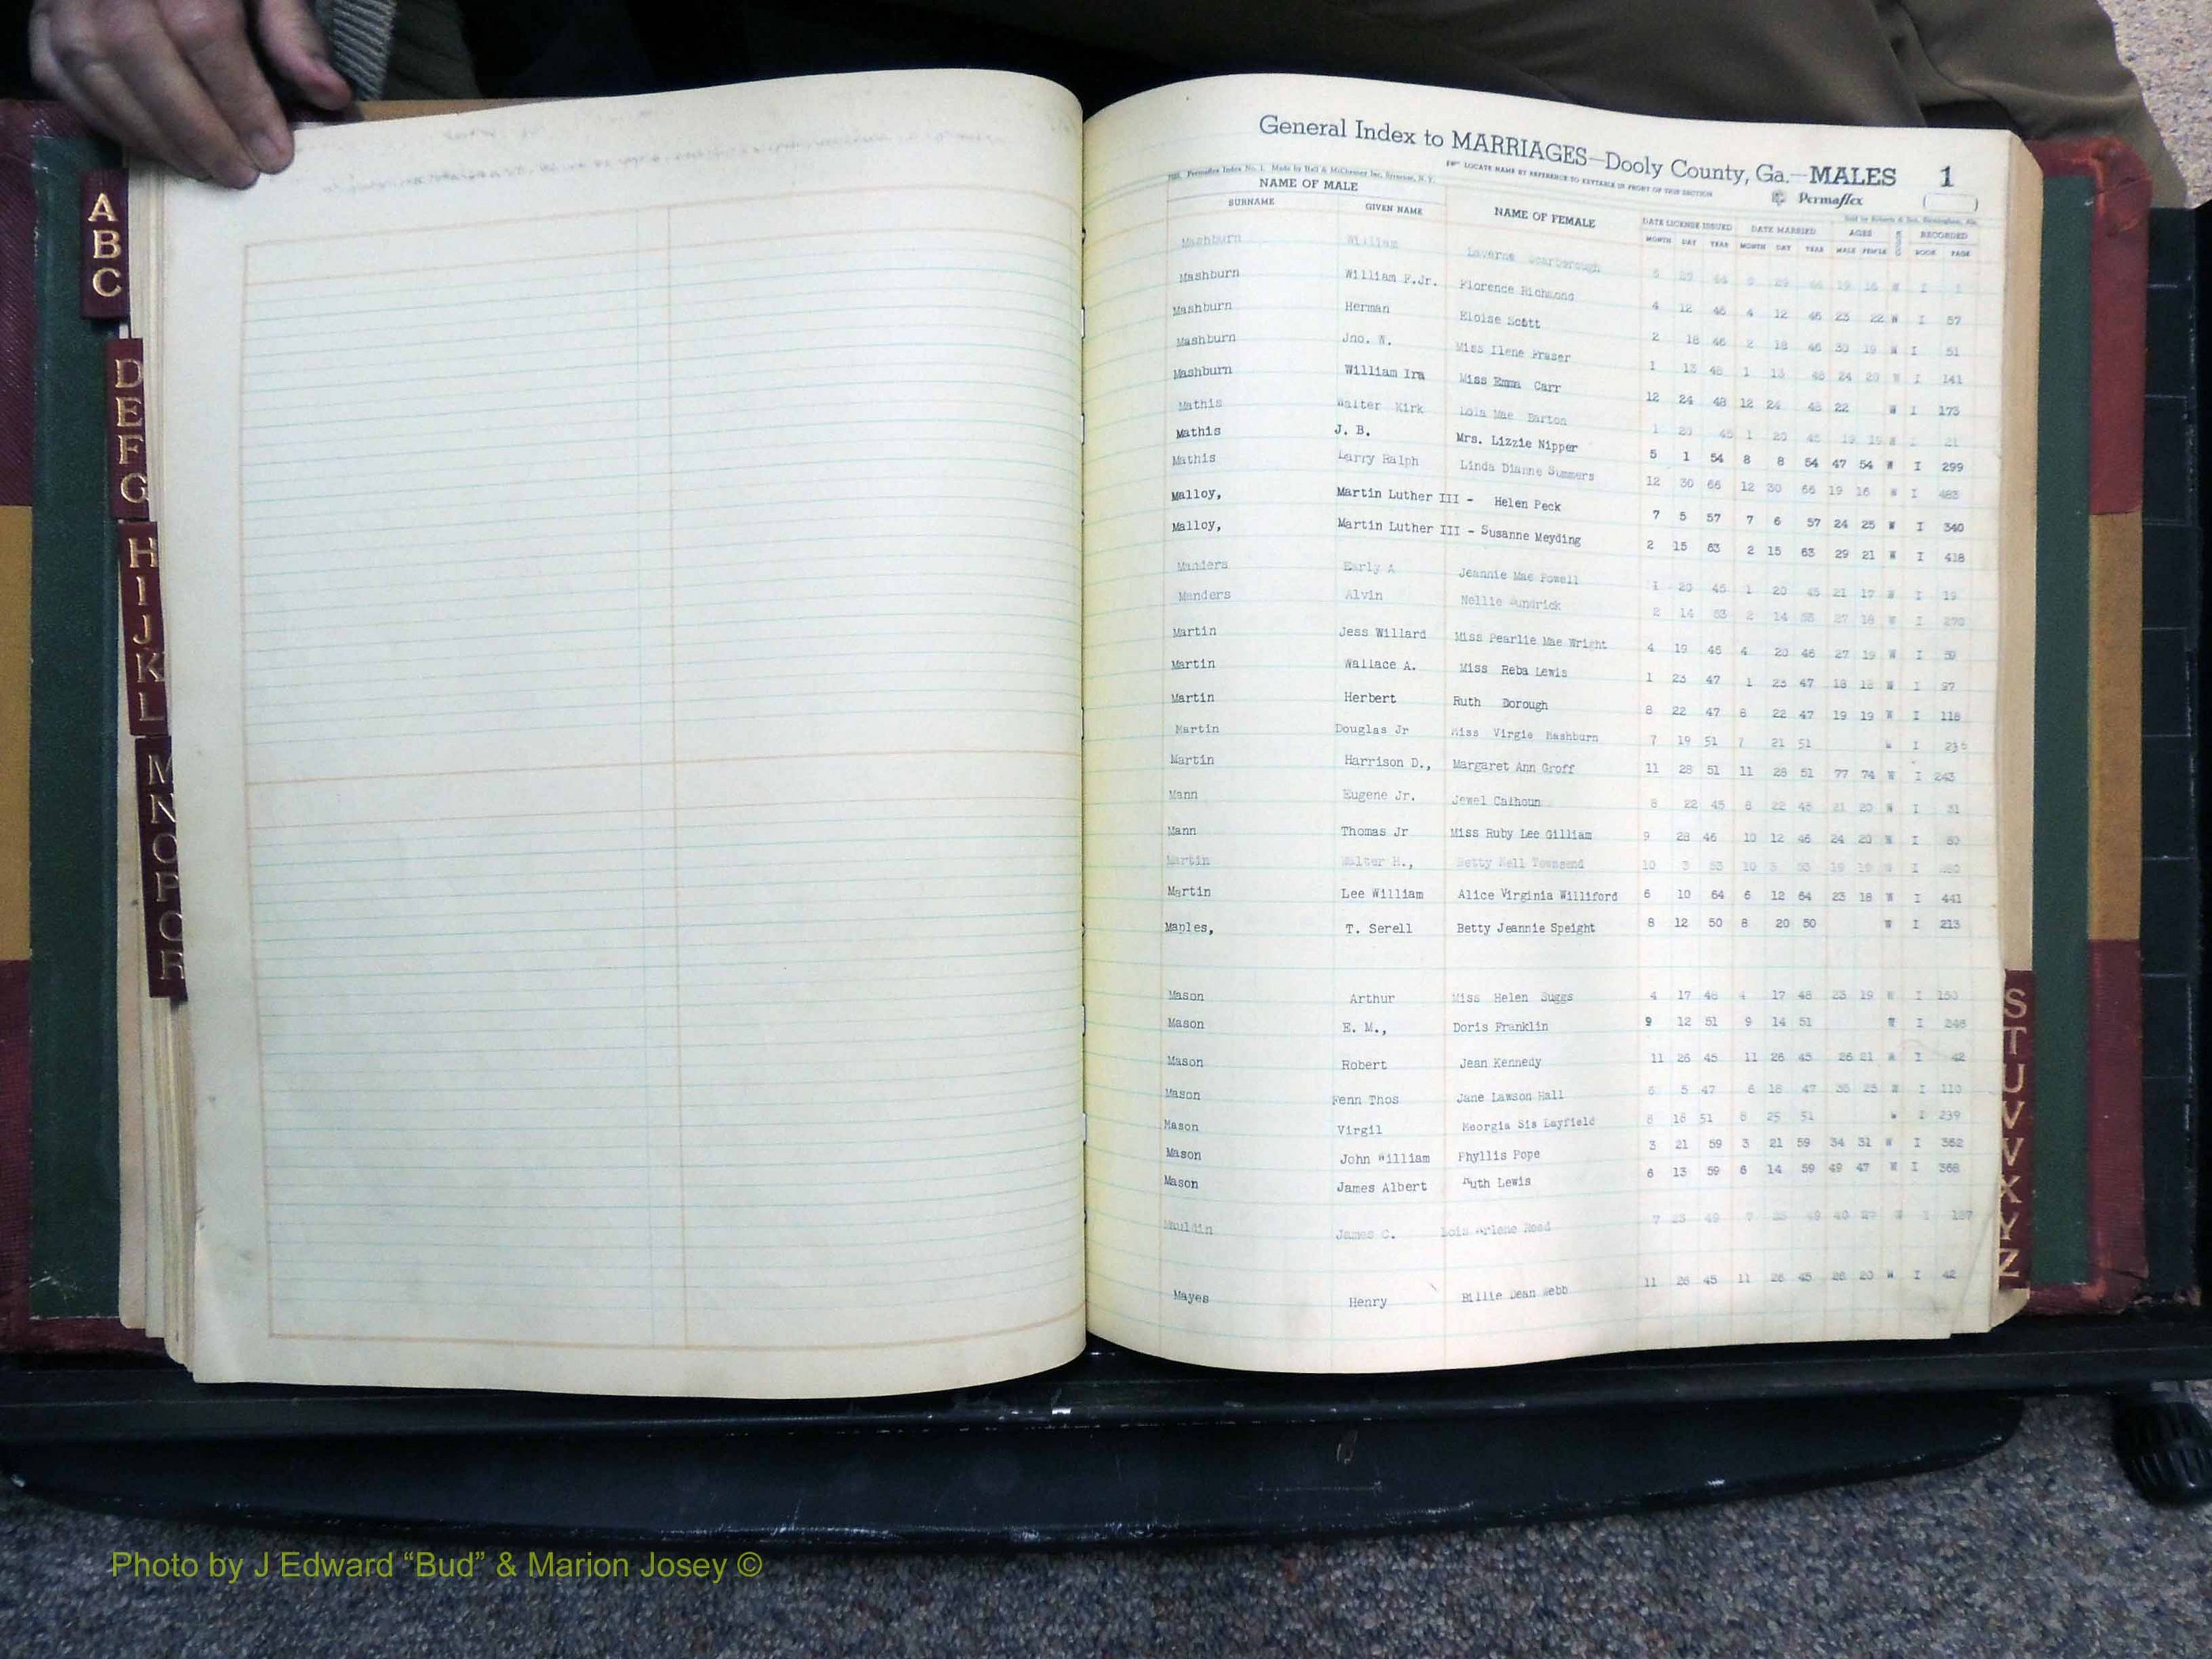 General Index to MARRIAGES—Dooly County, Ga.—MALES 1
LOCATE NAME BY REFERENCE TO KEYTABLE IN FRONT OF THIS SECTION
Permaflex Index No. 1. Made by Hall & McChesney Inc. Syracuse, N. Y.
Permaflex
NAME OF MALE
SURNAME GIVEN NAME NAME OF FEMALE DATE LICENSE ISSUED DATE MARRIED AGES RECORDED
MONTH DAY YEAR MONTH DAY YEAR MALE FEMALE BOOK PAGE
Mashburn William Laverne Scarborough 5 29 44 5 29 44 19 16 W I 1
Mashburn William F.Jr. Florence Richmond 4 12 46 4 12 46 23 22 W I 57
Mashburn Herman Eloise Scott 2 18 46 2 18 46 30 19 W I 51
Mashburn Jno. W. Miss Ilene Fraser 1 13 48 1 13 48 24 20 W I 141
Mashburn William Ira Miss Emma Carr 12 24 48 12 24 48 22 W I 173
Mathis Walter Kirk Lola Mae Barton 1 20 45 1 20 45 19 15 W I 21
Mathis J. B. Mrs. Lizzie Nipper 5 1 54 8 8 54 47 54 W I 299
Mathis Larry Ralph Linda Dianne Summers 12 30 66 12 30 66 19 16 W I 483
Malloy, Martin Luther III - Helen Peck 7 5 57 7 6 57 24 25 W I 340
Malloy, Martin Luther III - Susanne Meyding 2 15 63 2 15 63 29 21 W I 418
Manders Early A Jeannie Mae Powell 1 20 45 1 20 45 21 17 W I 19
Manders Alvin Nellie 2 14 53 2 14 53 27 18 W I 270
Martin Jess Willard Miss Pearlie Mae Wright 4 19 46 4 20 46 27 19 W I 59
Martin Wallace A. Miss Reba Lewis 1 23 47 1 23 47 18 18 W I 97
Martin Herbert Ruth Dorough 8 22 47 8 22 47 19 19 W I 118
Martin Douglas Jr Miss Virgie Mashburn 7 19 51 7 21 51 W I
Martin Harrison D., Margaret Ann Groff 11 28 51 11 28 51 77 74 W I 243
Mann Eugene Jr. Jewel Calhoun 8 22 45 8 22 45 21 20 W I 31
Mann Thomas Jr Miss Ruby Lee Gilliam 9 28 46 10 12 46 24 20 W I 80
Martin Walter H., Betty Nell Townsend 10 3 53 10 3 53 19 19 W I
Martin Lee William Alice Virginia Williford 6 10 64 6 12 64 23 18 W I 441
Maples, T. Serell Betty Jeannie Speight 8 12 50 8 20 50 W I 213
Mason Arthur Miss Helen Suggs 4 17 48 4 17 48 23 19 W I 150
Mason E. M., Doris Franklin 9 12 51 9 14 51 W I 246
Mason Robert Jean Kennedy 11 26 45 11 26 45 26 21 W I 42
Mason Fenn Thos Jane Lawson Hall 6 5 47 6 18 47 36 25 W I 110
Mason Virgil Meorgia Sis Layfield 8 18 51 8 25 51 W I 239
Mason John William Phyllis Pope 3 21 59 3 21 59 34 31 W I 362
Mason James Albert Ruth Lewis 6 13 59 6 14 59 49 47 W I 368
Mauldin James C. Lois Arlene Reed 7 23 49 7 49 40 W I 187
Mayes Henry Billie Dean Webb 11 26 45 11 26 45 28 20 W I 42
A
B
C
D
E
F
G
H
I
J
K
L
M
N
O
P
Q
R
S
T
U
V
W
X
Y
Z
Photo by J Edward “Bud” & Marion Josey ©